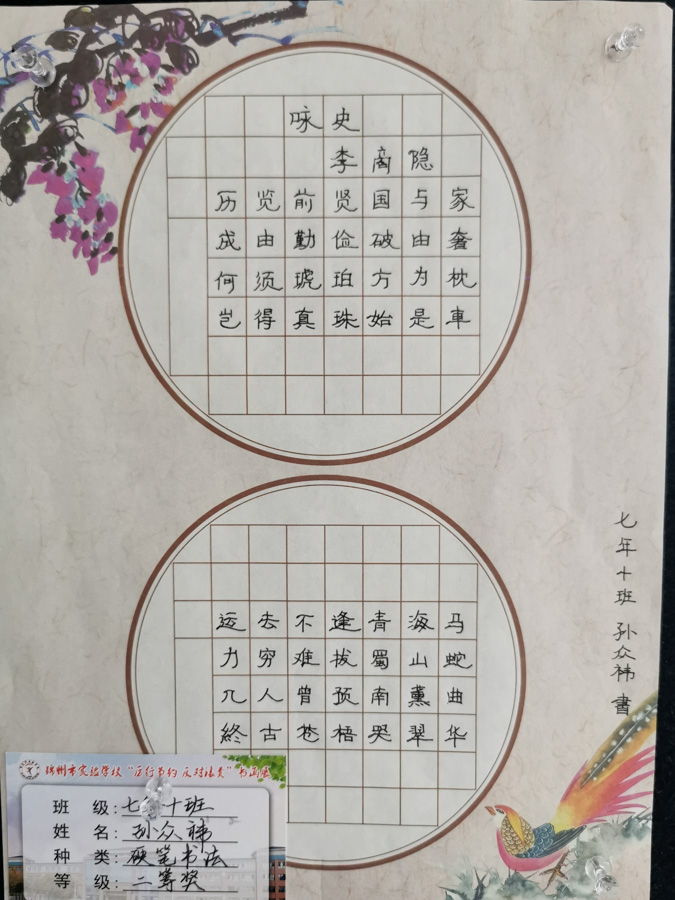 咏史
李商隐
历览前贤国与家
成由勤俭破由奢
何须琥珀方为枕
岂得真珠始是車
运去不逢青海马
力穷难拔蜀山蛇
几人曾预南薰曲
終古苍梧哭翠华
七年十班 孙众祎 書
锦州市实验学校“厉行节约 反对浪费”书画展
班 级:七年十班
姓 名:孙众祎
种 类:硬笔书法
等 级:二等奖